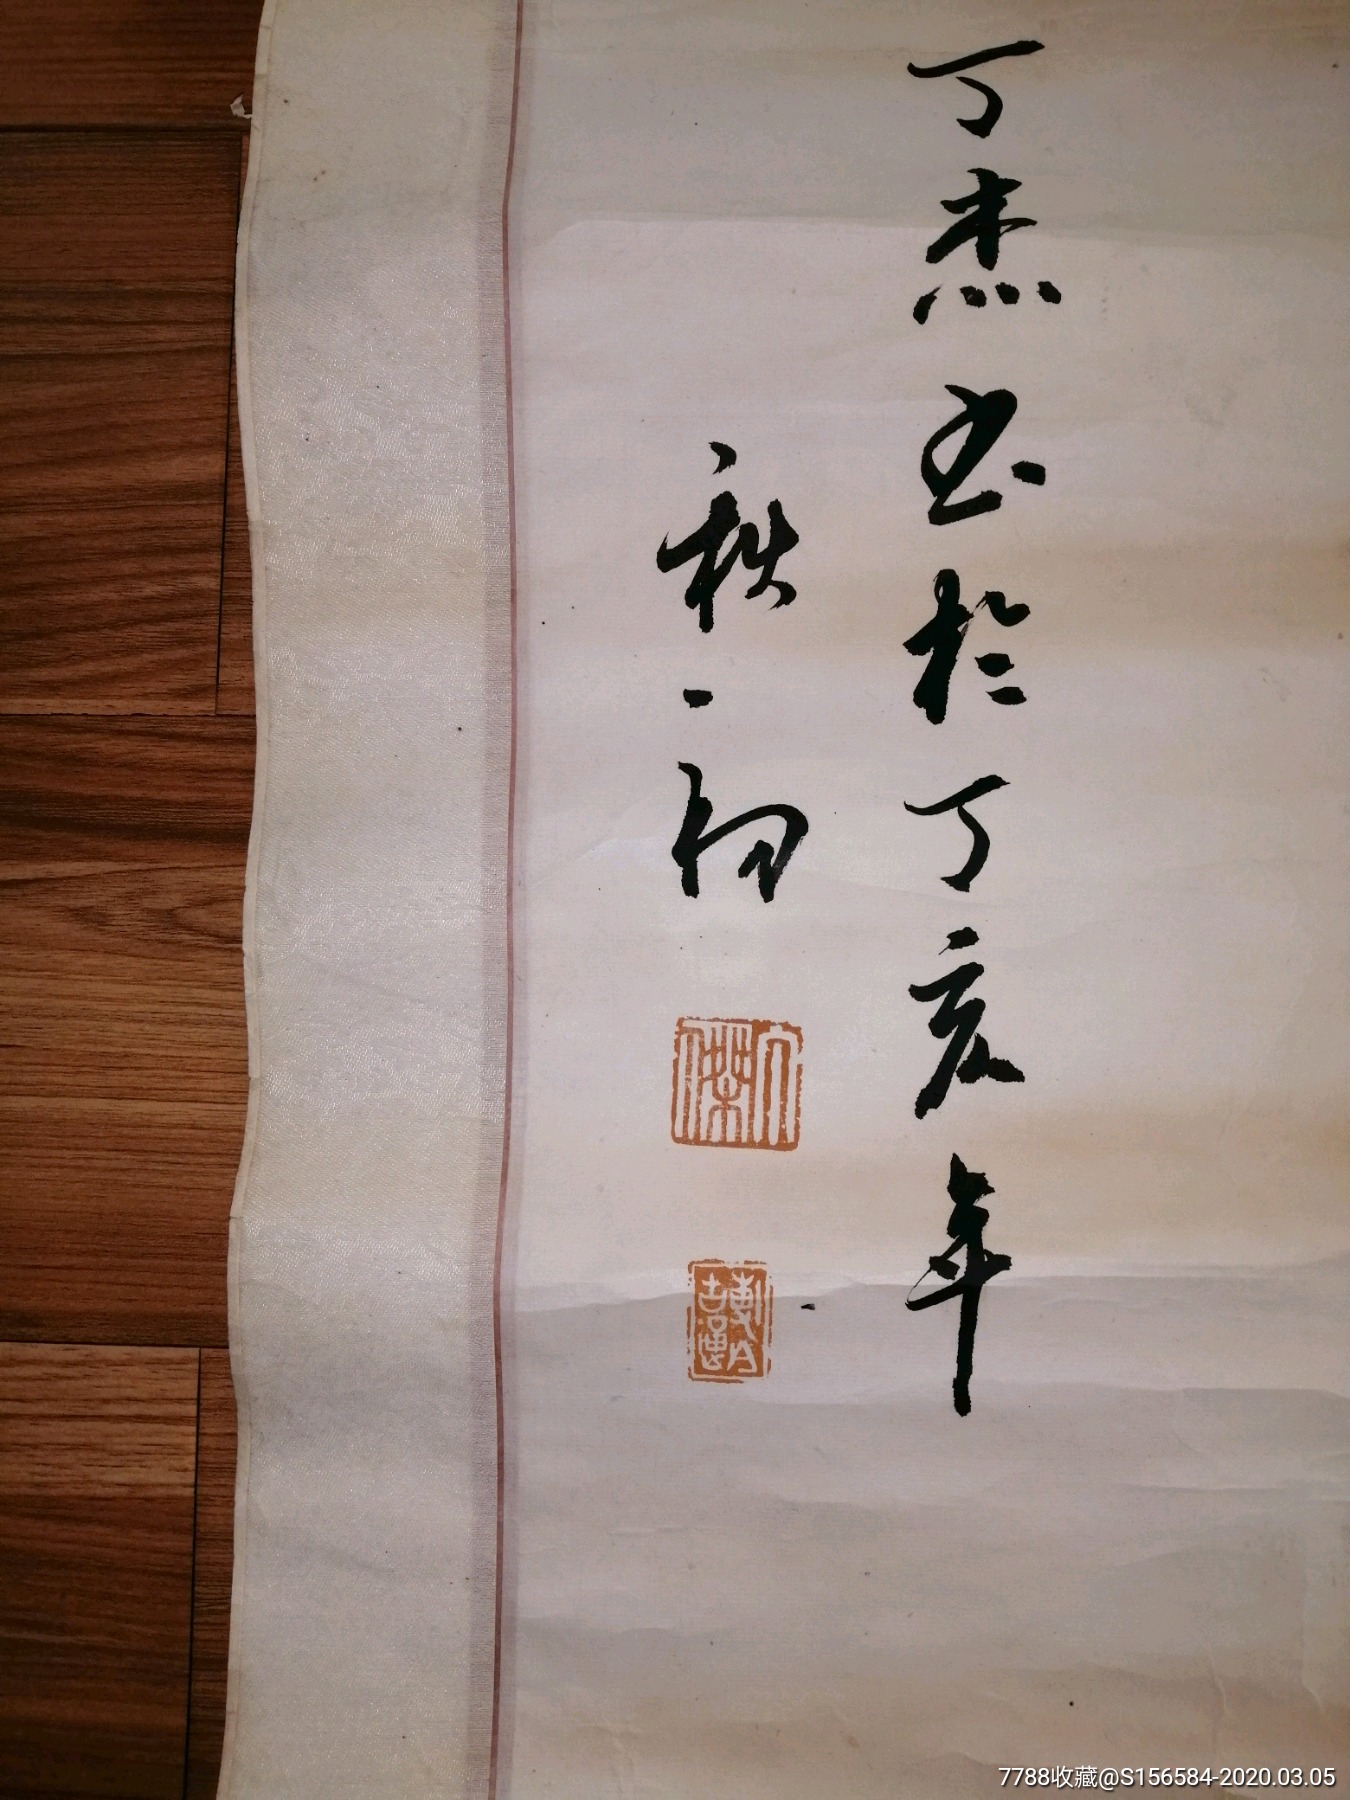 丁杰书於丁亥年
秋初
丁傑
7788收藏@S156584-2020.03.05